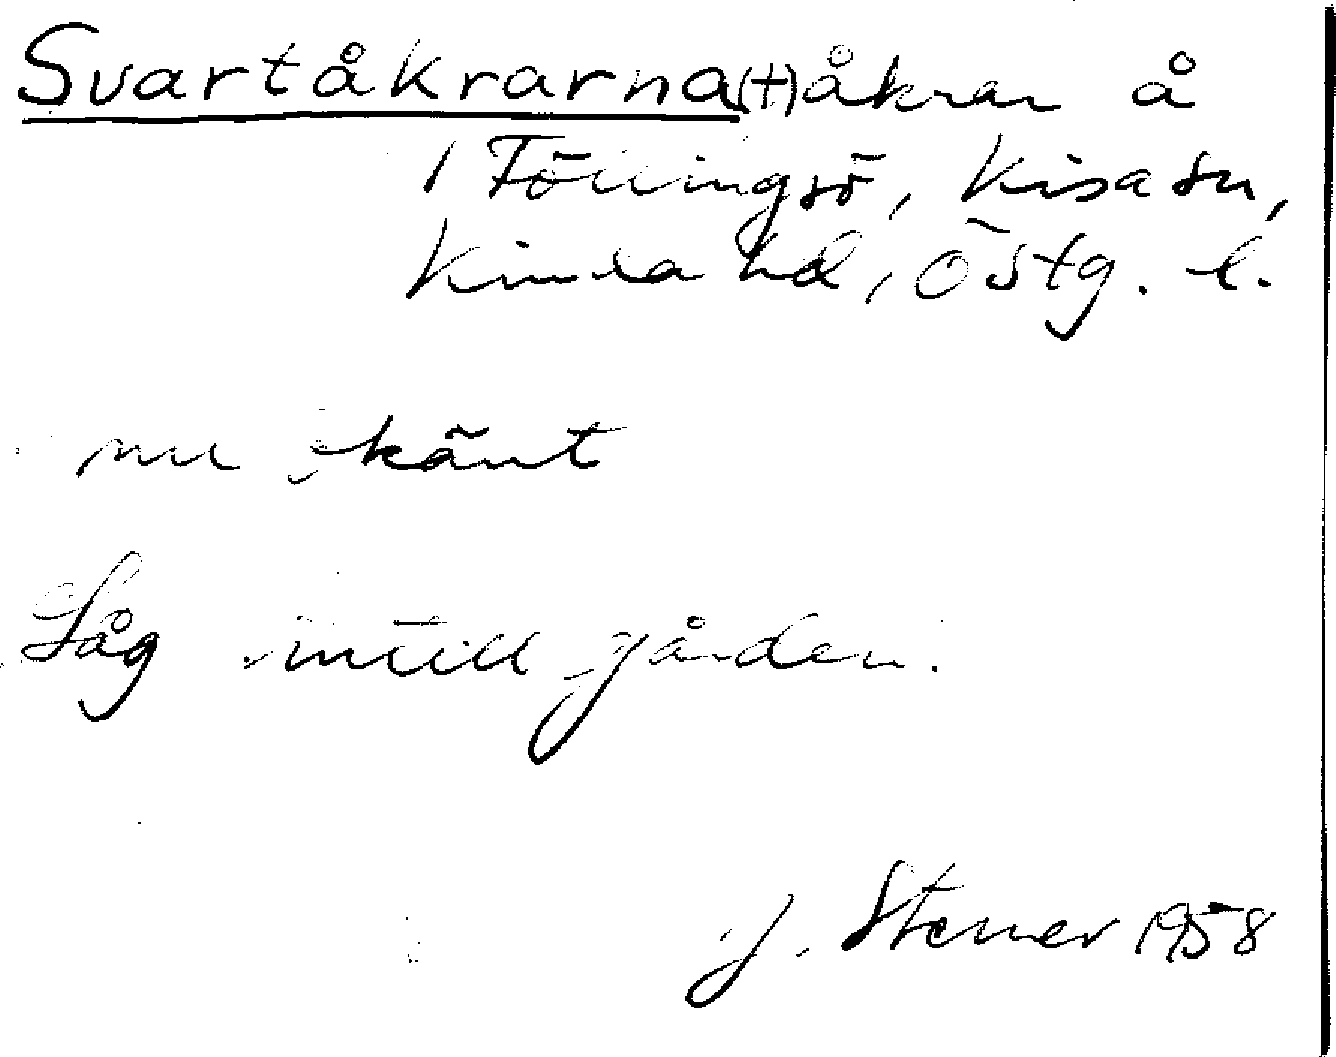 Svartåkrarna (†) åkrar å
1 Föllingsö, Kisa sn,
Kinda hd, Östg. l.
nu okänt
Låg intill gården.
J. Stener 1958